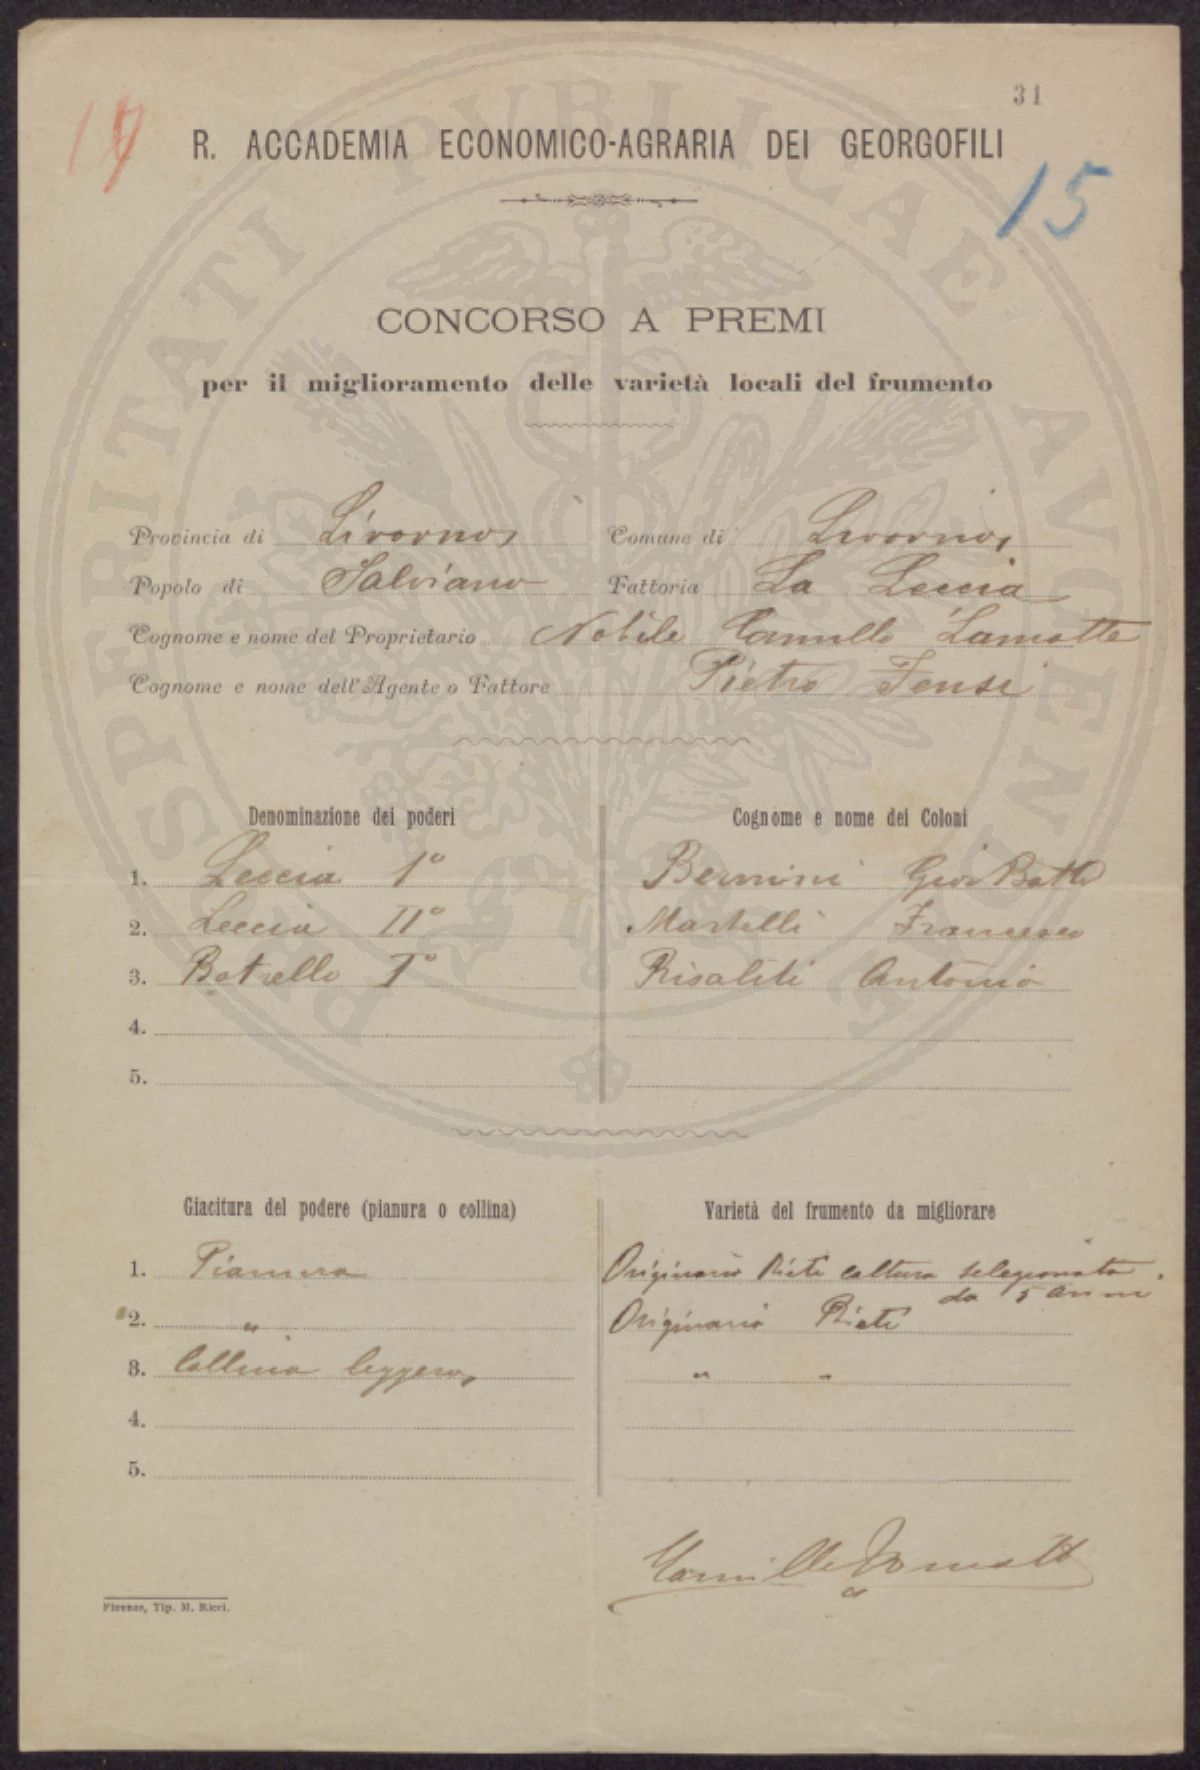 31
R. ACCADEMIA ECONOMICO-AGRARIA DEI GEORGOFILI
15
CONCORSO A PREMI
per il miglioramento delle varietà locali del frumento
Provincia di Livorno, Comune di Livorno,
Popolo di Salviano Fattoria La Leccia
Cognome e nome del Proprietario Nobile Camillo Lamotte
Cognome e nome dell'Agente o Fattore Pietro
Denominazione dei poderi Cognome e nome dei Coloni
1. Leccia 1° Bernini Giov Batta
2. Leccia II° Martelli Francesco
3. Botrello I° Risaliti Antonio
4.
5.
Giacitura del podere (pianura o collina) Varietà del frumento da migliorare
1. Pianura Originario Rieti coltura selezionata
da 5 anni.
2. " Originario Rieti
3. Collina leggera, " "
4.
5.
Firenze, Tip. M. Ricci.
PROSPERITATI PUBLICAE AUGENDAE